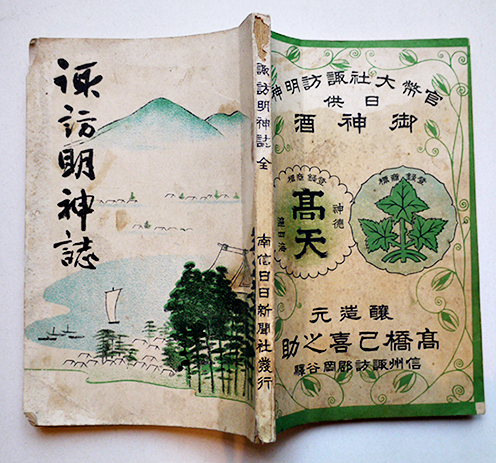 諏訪明神誌
諏訪明神誌 全
南信日日新聞社發行
官幣大社諏訪明神
日供
御神酒
登錄商標
髙天
神德
登錄商標
釀造元
髙橋己喜之助
信州諏訪郡岡谷驛